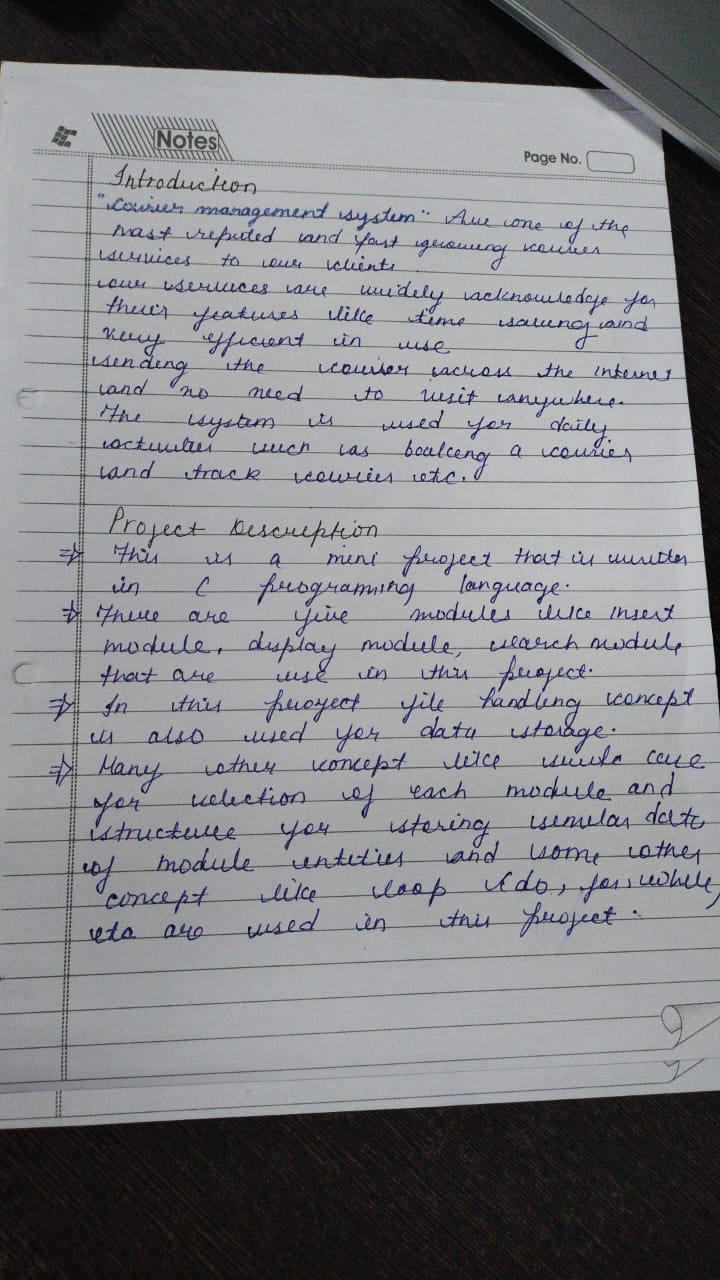 Notes
Page No.
Introduction
"Courier management system" Are one of the
most reputed and fast growing courier
services to our clients.
our services are widely acknowledge for
their features like time saving and
very efficient in use
sending the courier across the internet
and no need to visit anywhere.
The system is used for daily
activities such as booking a courier
and track courier etc.
Project Description
⇒ This is a mini project that is written
in C programing language.
⇒ There are five modules like insert
module, display module, search module
that are use in this project.
⇒ In this project file handling concept
is also used for data storage.
⇒ Many other concept like case
for selection of each module and
structure for storing similar data
of module entities and some other
concept like loop (do, for, while,
etc are used in this project.